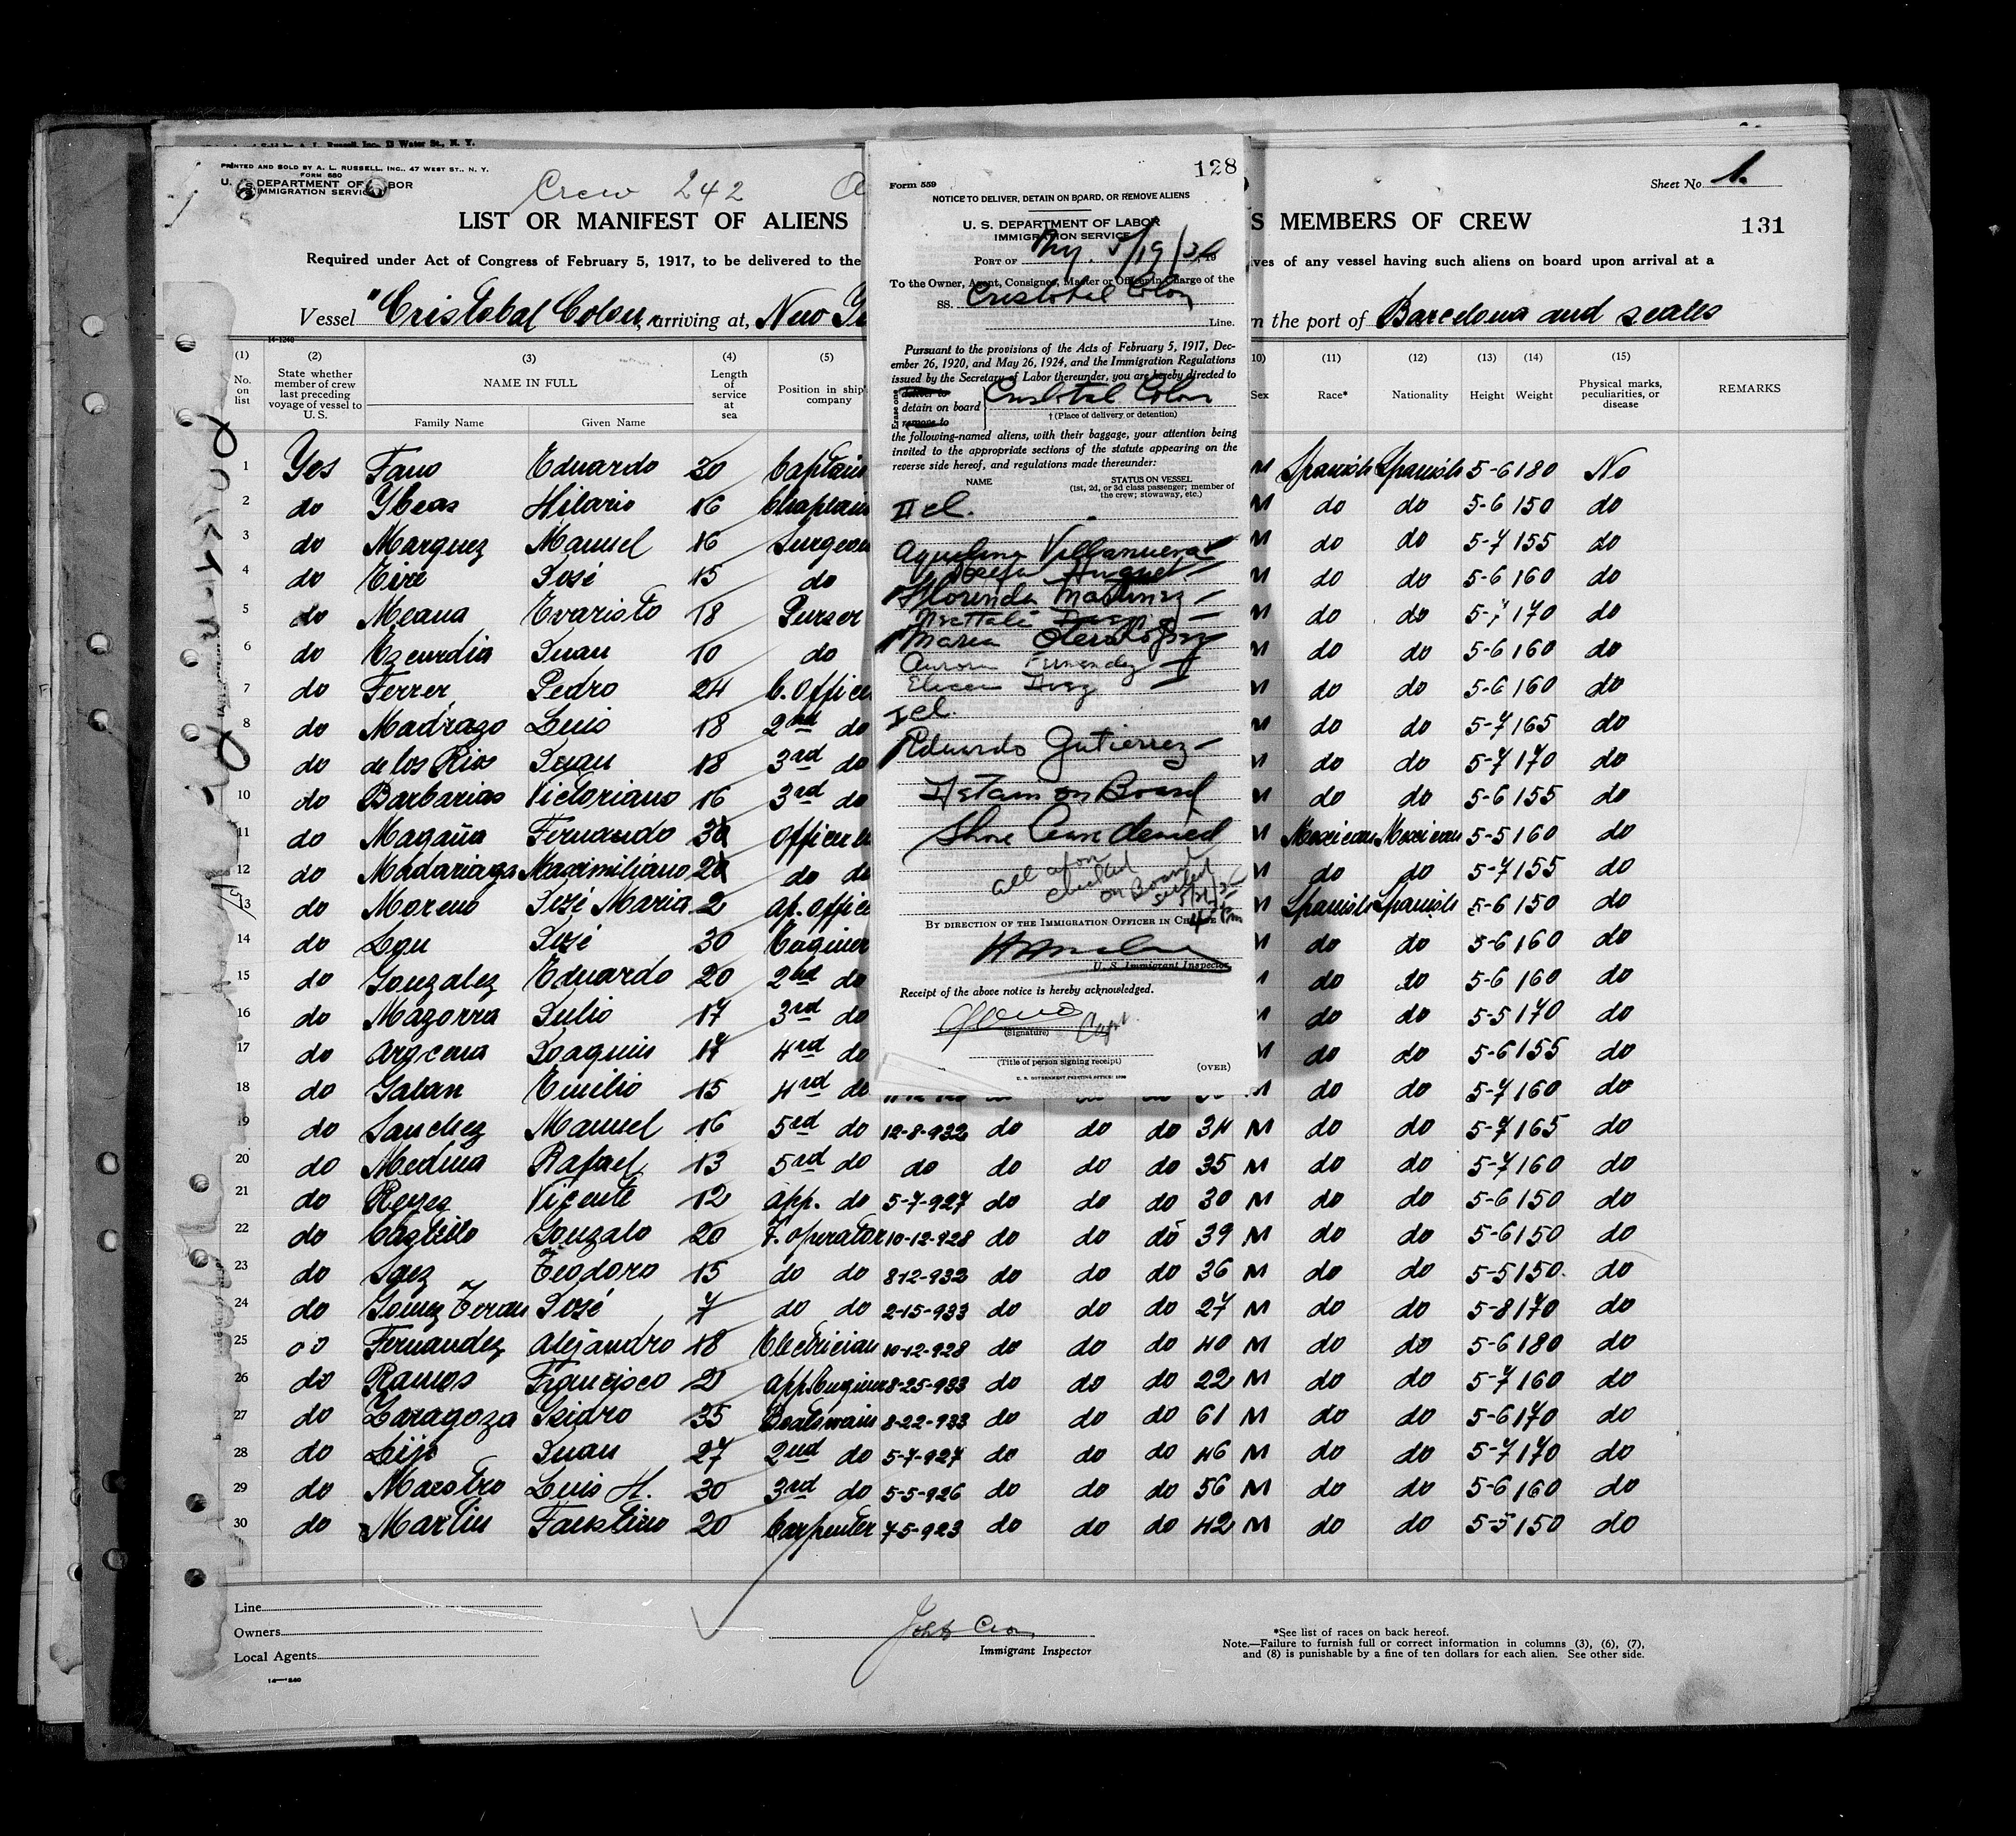 PRINTED AND SOLD BY A. L. RUSSELL, INC., 47 WEST ST., N. Y.
FORM 680
U. S. DEPARTMENT OF LABOR
IMMIGRATION SERVICE
Crew 242
Sheet No. 1.
LIST OR MANIFEST OF ALIENS
S MEMBERS OF CREW
131
Required under Act of Congress of February 5, 1917, to be delivered to the
ives of any vessel having such aliens on board upon arrival at a
Vessel "Cristobal Colon" arriving at, New
n the port of Barcelona and scales
(1) (2) (3) (4) (5) (10) (11) (12) (13) (14) (15)
No. on list
State whether member of crew last preceding voyage of vessel to U. S.
NAME IN FULL
Family Name Given Name
Length of service at sea
Position in ship' company
Sex Race* Nationality Height Weight
Physical marks, peculiarities, or disease
REMARKS
1 Yes Fano Eduardo 20 Captain M Spanish Spanish 5-6 180 No
2 do Ybeas Hilario 16 Chaplain M do do 5-6 150 do
3 do Marquez Manuel 16 Surgeon M do do 5-7 155 do
4 do Eire José 15 do M do do 5-6 160 do
5 do Meana Evaristo 18 Purser M do do 5-7 170 do
6 do Ezcurdia Juan 10 do M do do 5-6 160 do
7 do Ferrer Pedro 24 C. Office M do do 5-6 160 do
8 do Madrazo Luis 18 2nd do M do do 5-7 165 do
do de los Rios Juan 18 3rd do M do do 5-7 170 do
10 do Barbarias Victoriano 16 3rd do M do do 5-6 155 do
11 do Magaña Fernando Officer M Mexican Mexican 5-5 160 do
12 do Madariaga Maximiliano do do M do do 5-7 155 do
13 do Moreno José Maria 2 ap. Offic M Spanish Spanish 5-6 150 do
14 do José 30 Engineer M do do 5-6 160 do
15 do Gonzalez Eduardo 20 2nd do do do 5-6 160 do
16 do Mazorra Julio 17 3rd do M do do 5-5 170 do
17 do Argcena Joaquin 17 4rd do M do do 5-6 155 do
18 do Galan Emilio 15 4rd do M do do 5-7 160 do
19 do Sanchez Manuel 16 5rd do 12-8-932 do do do 34 M do do 5-7 165 do
20 do Medina Rafael 13 5rd do do do do do 35 M do do 5-7 160 do
21 do Reyes Vicente 12 app. do 5-7-927 do do do 30 M do do 5-6 150 do
22 do Castillo Gonzalo 20 T. operator 10-12-928 do do do 39 M do do 5-6 150 do
23 do Saez Teodoro 15 do do 8-12-932 do do do 36 M do do 5-5 150 do
24 do Gomez Teran José 7 do do 2-15-933 do do do 27 M do do 5-8 170 do
25 do Fernandez Alejandro 18 Electrician 10-12-928 do do do 40 M do do 5-6 180 do
26 do Ramos Francisco 2 app. Engineer 8-25-933 do do do 22 M do do 5-7 160 do
27 do Zaragoza Isidro 35 Boatswain 8-22-933 do do do 61 M do do 5-6 170 do
28 do Lijo Juan 27 2nd do 5-7-927 do do do 46 M do do 5-7 170 do
29 do Maestro Luis H. 30 3rd do 5-5-926 do do do 56 M do do 5-6 160 do
30 do Martin Faustino 20 Carpenter 7-5-923 do do do 42 M do do 5-5 150 do
Line
Owners
Local Agents
Immigrant Inspector
*See list of races on back hereof.
Note.—Failure to furnish full or correct information in columns (3), (6), (7),
and (8) is punishable by a fine of ten dollars for each alien. See other side.
128
Form 559
NOTICE TO DELIVER, DETAIN ON BOARD, OR REMOVE ALIENS
U. S. DEPARTMENT OF LABOR
IMMIGRATION SERVICE
PORT OF Ny. 5/19/34
To the Owner, Agent, Consignee, Master or Officer in Charge of the
SS. Cristobal Colon
Line.
Pursuant to the provisions of the Acts of February 5, 1917, Dec-
ember 26, 1920, and May 26, 1924, and the Immigration Regulations
issued by the Secretary of Labor thereunder, you are hereby directed to
Erase one
deliver to
detain on board
remove to
Cristobal Colon
† (Place of delivery or detention)
the following-named aliens, with their baggage, your attention being
invited to the appropriate sections of the statute appearing on the
reverse side hereof, and regulations made thereunder:
NAME STATUS ON VESSEL
(1st, 2d, or 3d class passenger; member of
the crew; stowaway, etc.)
II cl.
Aquelina Villanueva
Josefa Huguet
Florinda Martinez
Maria Otero Lopez
Aurora Fernandez
Eliccia Diaz
I cl.
Eduardo Gutierrez
Detain on Board
Shore leave denied
all afon
checked
on Board
sailed
BY DIRECTION OF THE IMMIGRATION OFFICER IN CHARGE
U. S. Immigrant Inspector.
Receipt of the above notice is hereby acknowledged.
Capt.
(Signature)
(Title of person signing receipt)
(OVER)
U. S. GOVERNMENT PRINTING OFFICE: 1930